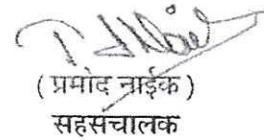 ( प्रमोद नाईक )
सहसंचालक